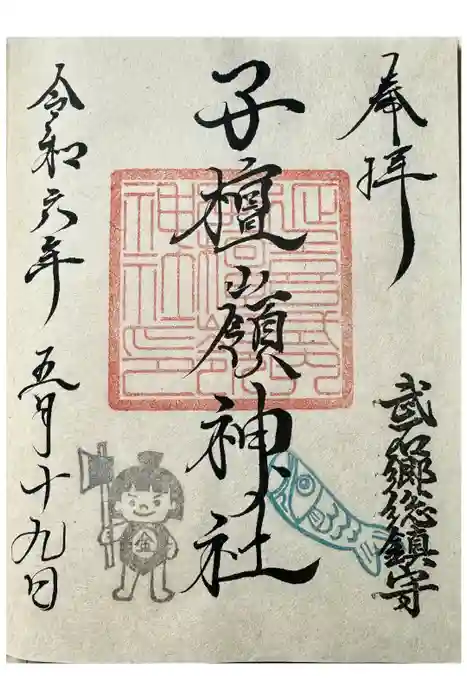 奉拝
武石郷総鎮守
子檀嶺神社
令和六年五月十九日
金